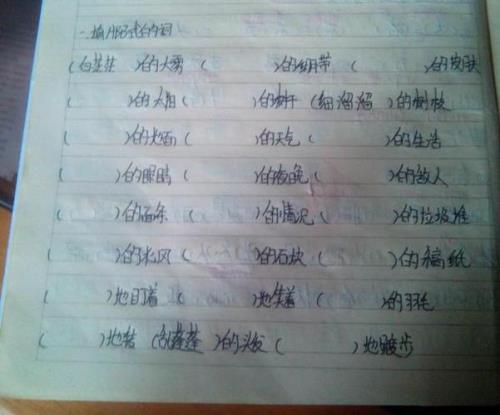 一、填ABB式的词
(白茫茫)的大雾 ( )的绷带 ( )的皮肤
( )的太阳 ( )的树干 (细溜溜)的树枝
( )的地面 ( )的天气 ( )的生活
( )的眼睛 ( )的夜晚 ( )的敌人
( )的石条 ( )的情况 ( )的垃圾堆
( )的北风 ( )的石块 ( )的稿纸
( )地盯着 ( )地笑着 ( )的羽毛
( )地转 ( 蓬蓬)的头发 ( )地踱步